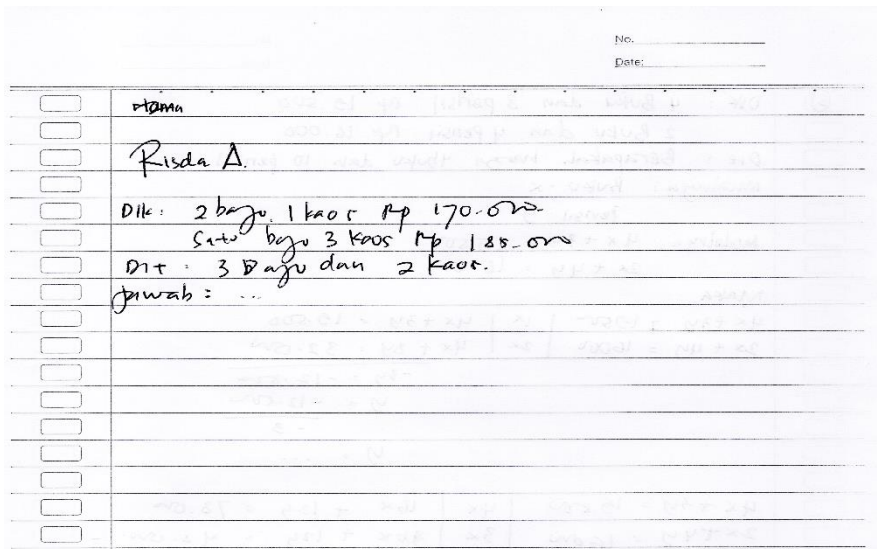 No.
Date:
Nama
Risda A.
Dik: 2 baju, 1 kaos Rp 170.000
Satu baju 3 kaos Rp 185.000
Dit : 3 Baju dan 2 kaos.
Jawab : ...